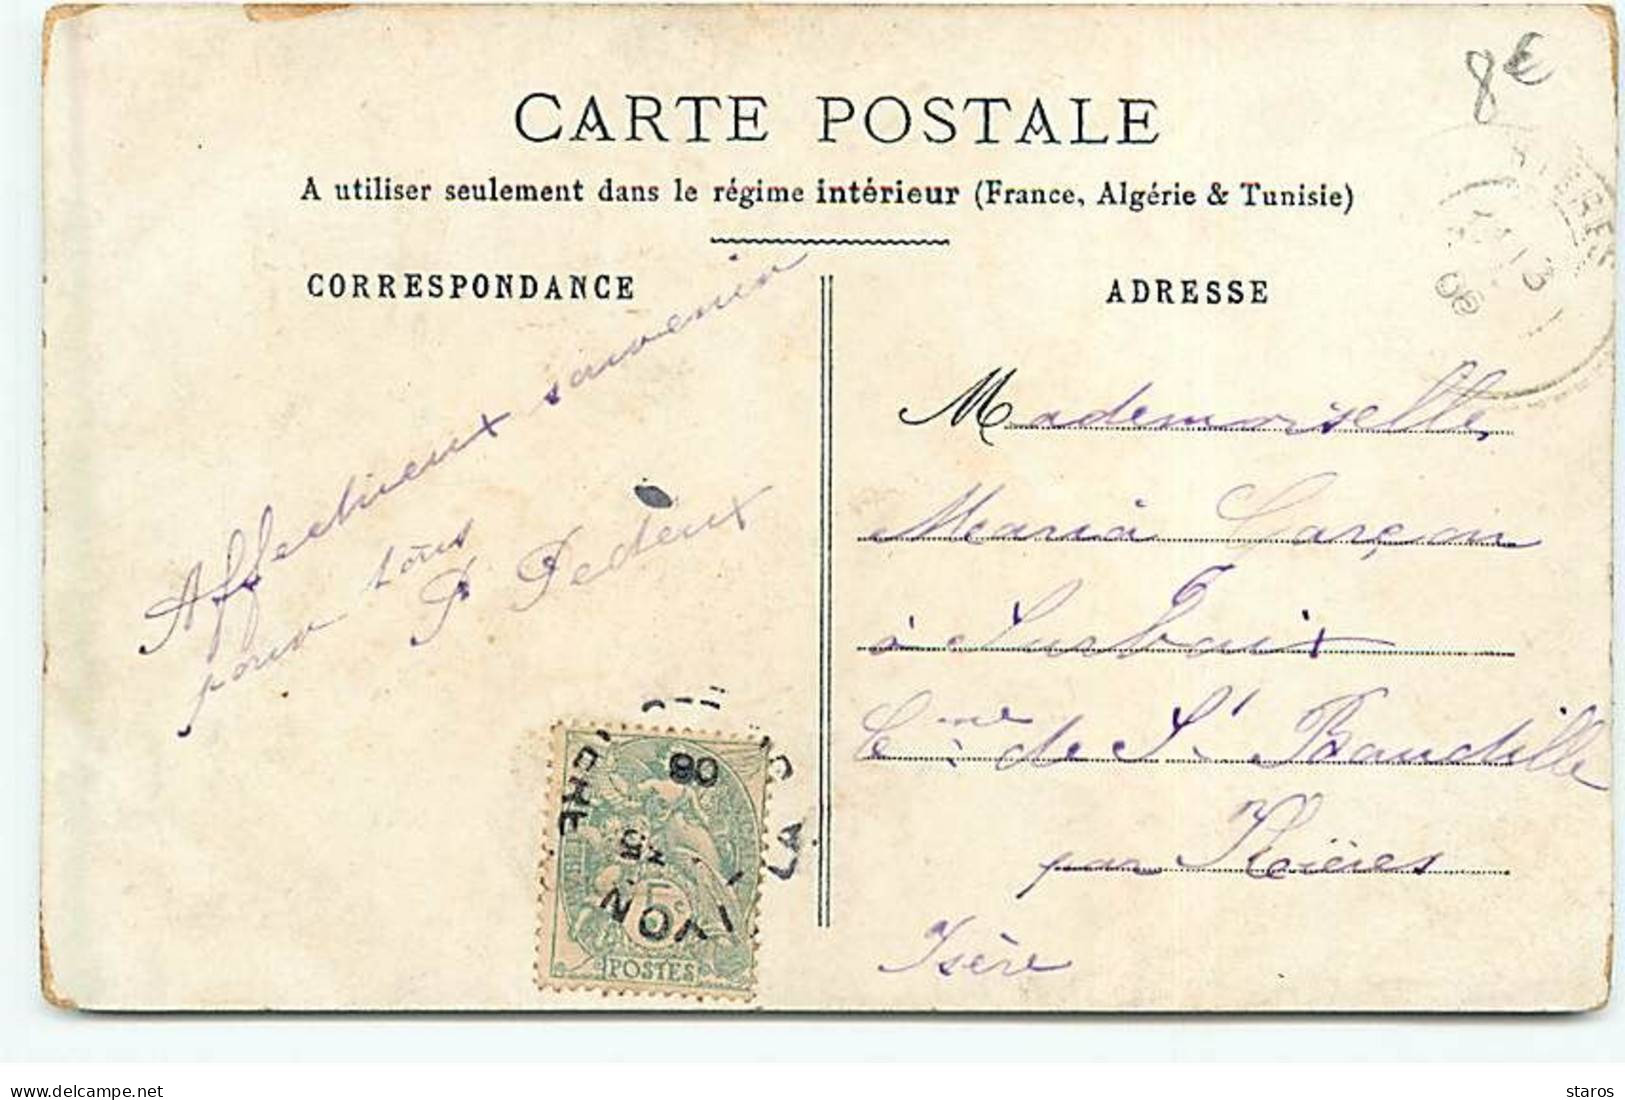 8€
CARTE POSTALE
A utiliser seulement dans le régime intérieur (France, Algérie & Tunisie)
CORRESPONDANCE
ADRESSE
Affectueux souvenir
pour tous
P. Pedeux
Mademoiselle
Maria Garçon
à Surbaix
Cne de St Baudille
par
Isère
08
15
LYON
LA
5c
POSTES
13
08
delcampe.net
staros